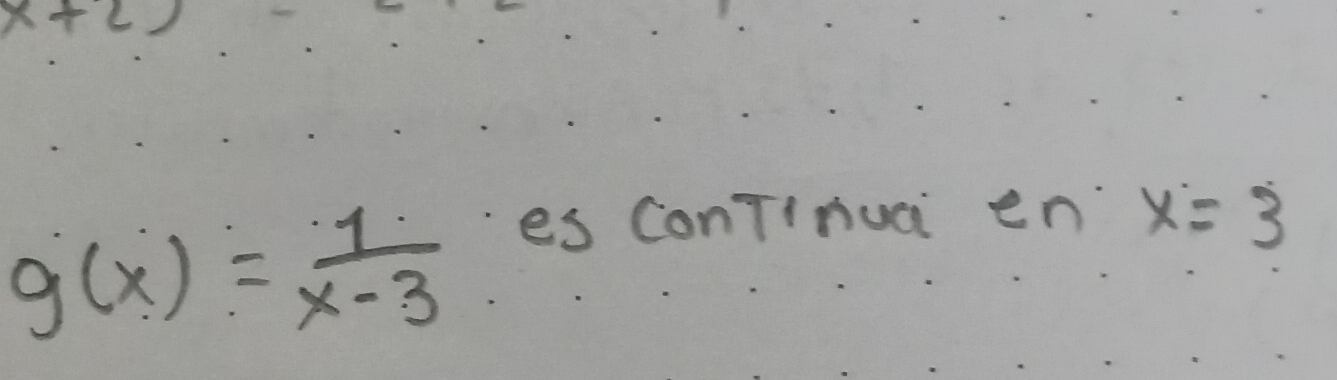 x+2)
g(x) = 1/(x-3) es continua en x=3